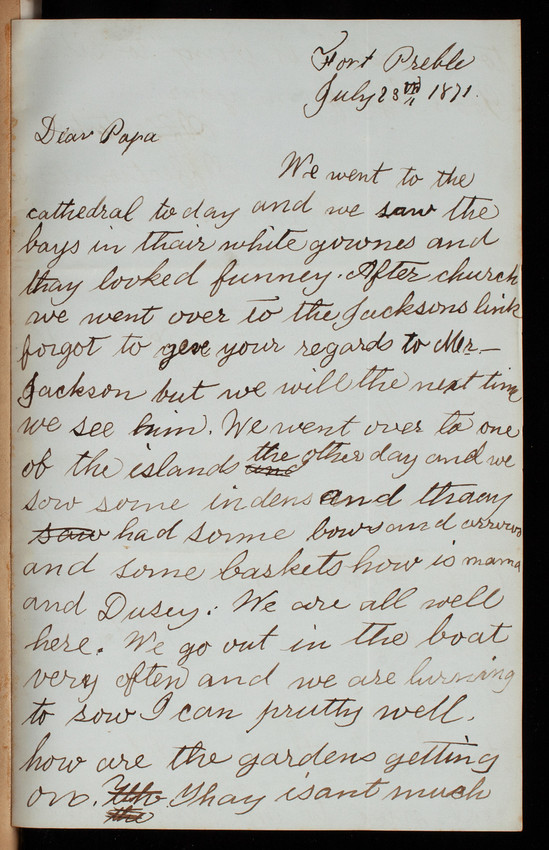 Fort Preble
July 23th 1871.
Dear Papa
We went to the
cathedral today and we saw the
boys in thair white gownes and
thay looked funney. After church
we went over to the Jacksons link
forgot to geve your regards to Mr.
Jackson but we will the next time
we see him. We went over to one
of the islands the other day and we
sow some indens and thaey
saw had some bows and arrows
and some baskets how is mama
and Dusey. We are all well
here. We go out in the boat
very often and we are lurning
to row I can prutty well.
how are the gardens getting
on. Thay isant much